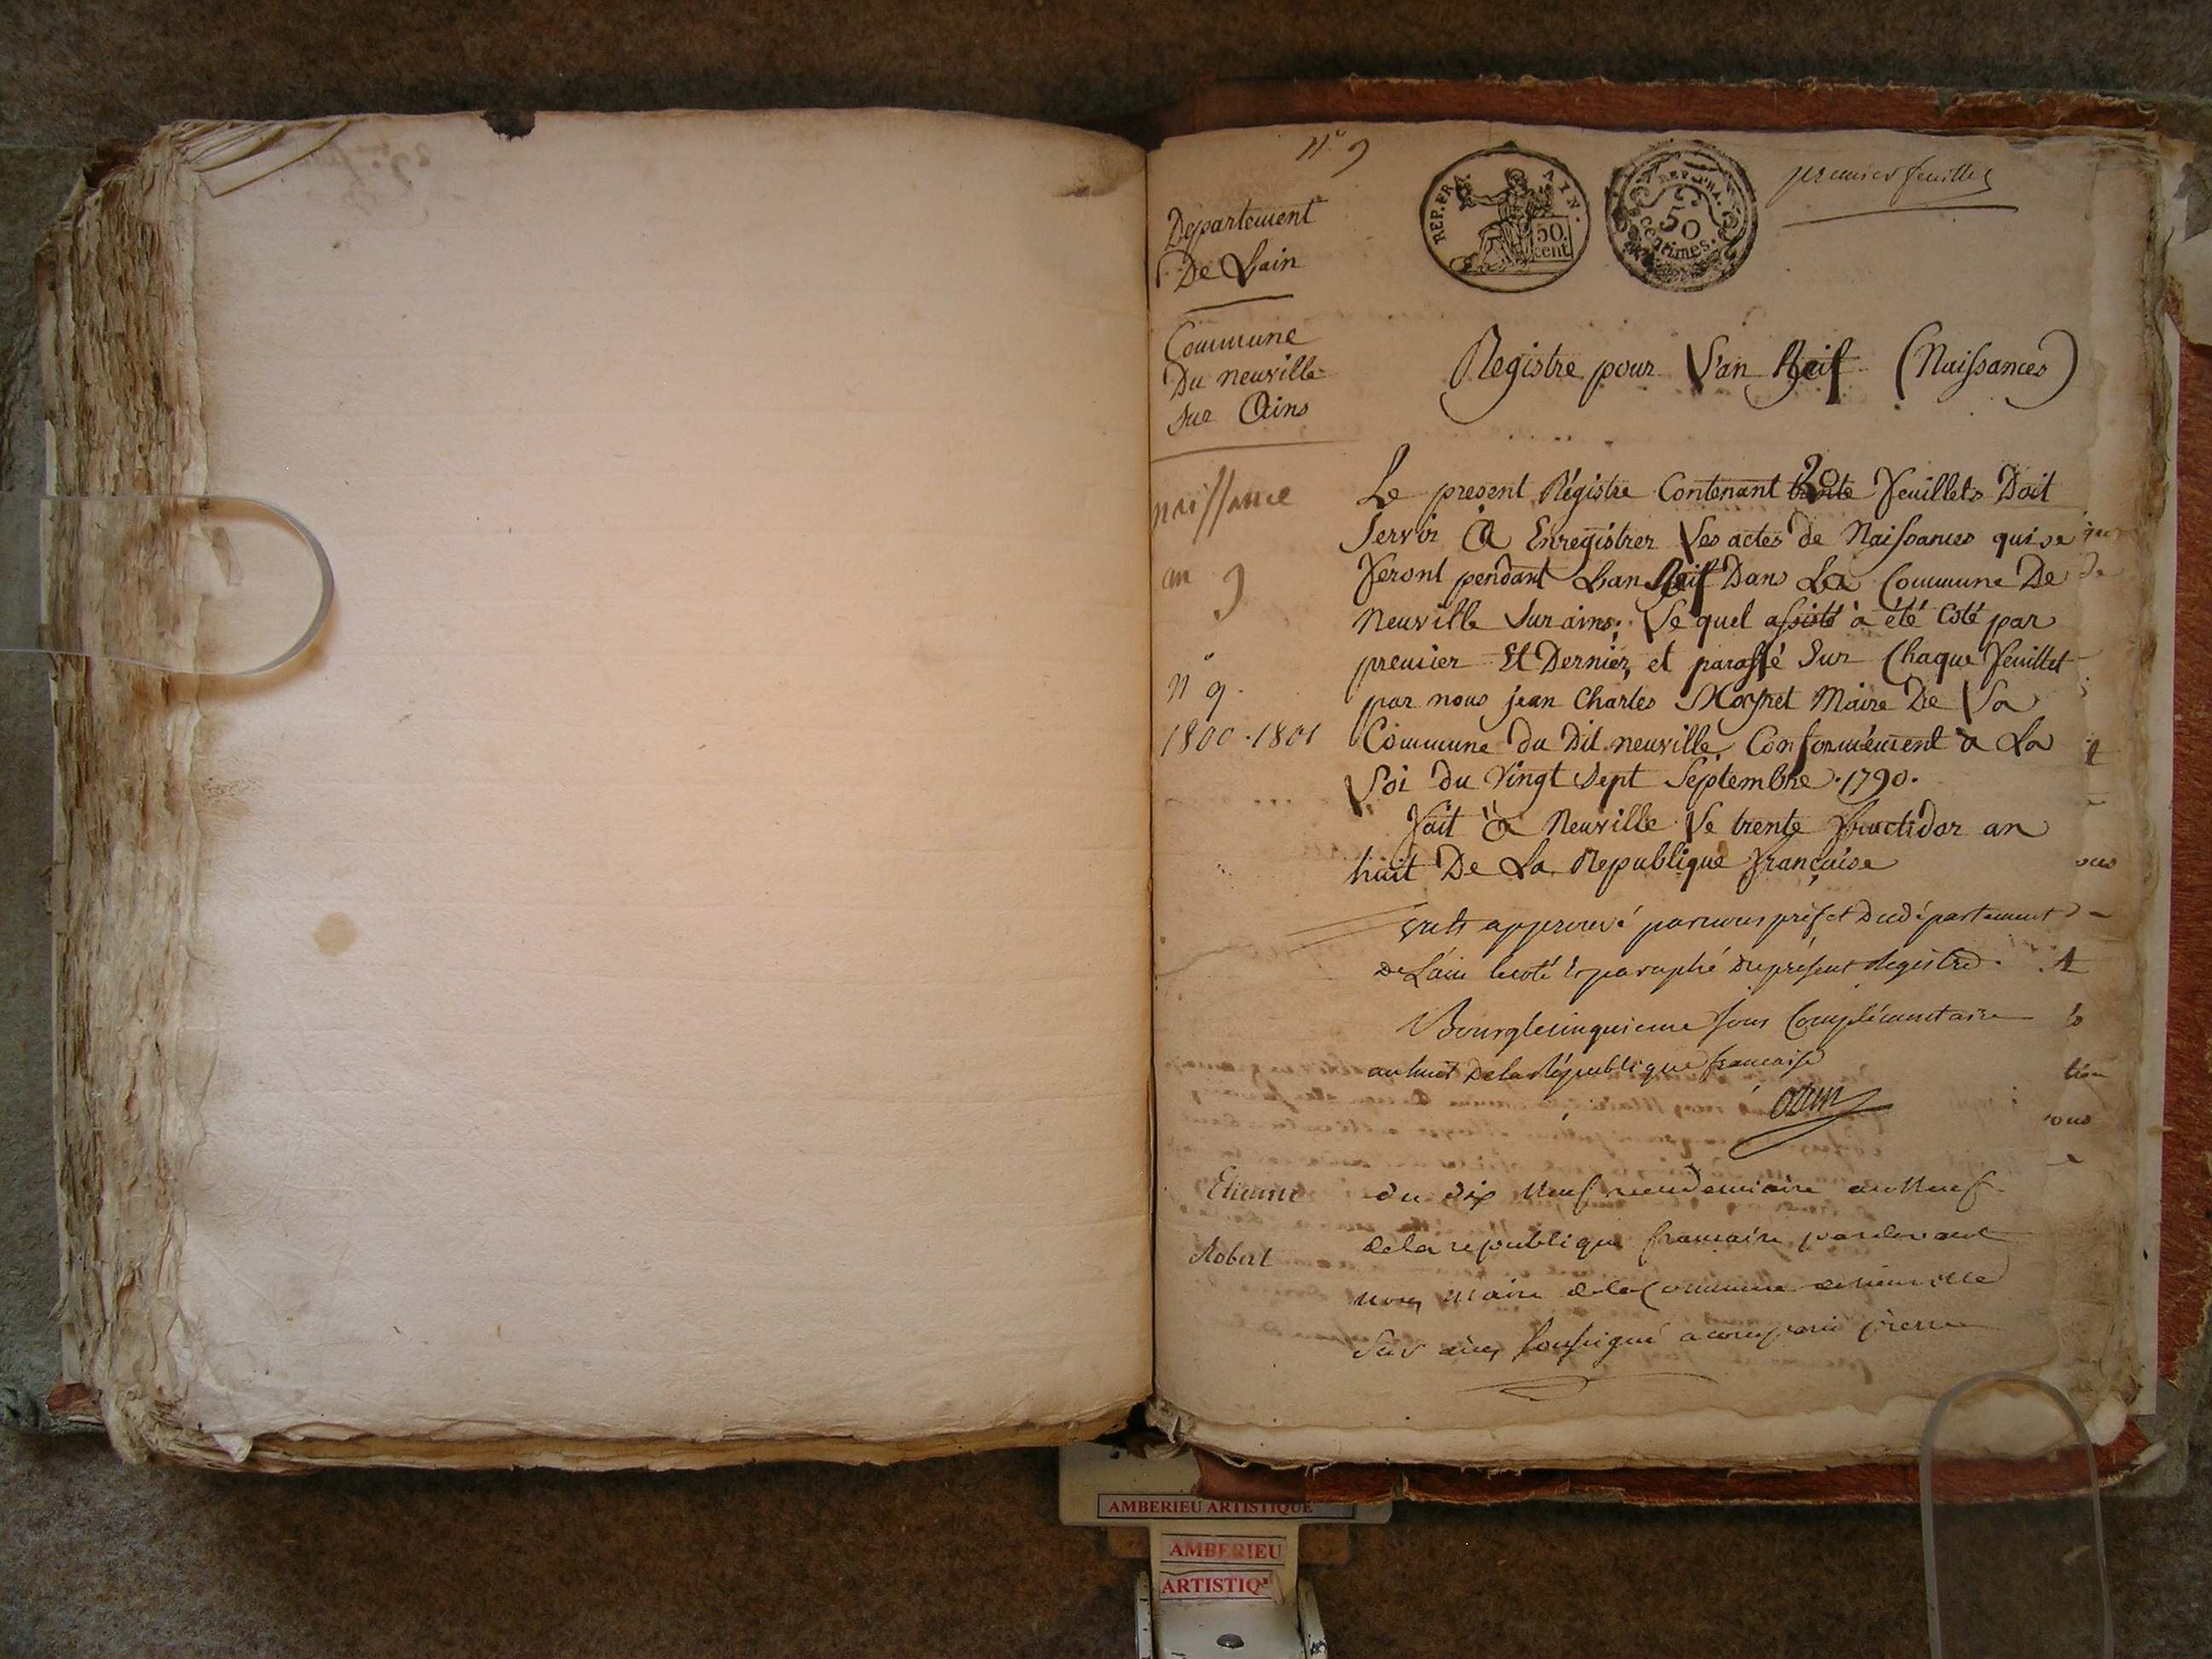 N.º 9
REP. FRA. AIN.
50. cent
REP. FRA.
50
centimes.
premier feuillet
Departement
De Lain
Commune
Du neuville
sur Ains
Registre pour L'an Neuf (Naissances)
naissance
an 9
nº 9.
1800.1801
Le present Régistre Contenant trente 20 feuillets Doit
Servir à Enregistrer Les actes de Naissances qui se
feront pendant Lan Neuf Dans La Commune De
Neuville Sur ains; Le quel à été Coté par
premier Et Dernier, et paraffé Sur Chaque feuillet
par nous jean Charles Moynet Maire De La
Commune Du Dit neuville, Conformément à La
Loi du Vingt Sept Septembre 1790.
Fait à Neuville Le trente fructidor an
huit De La Republique française
approuvé par nous préfet du département
De L'ain le coté & paraphé du présent Registre.
Bourg le cinquieme jour Complémentaire
an huit De la République française
Ozun
Etienne
Robert
du dix neuf vendemiaire an Neuf
de la republique francaise pardevant
nous maire de la Commune de neuville
Sur ains Soussigné a comparu pierre
AMBERIEU ARTISTIQUE
AMBERIEU
ARTISTIQ